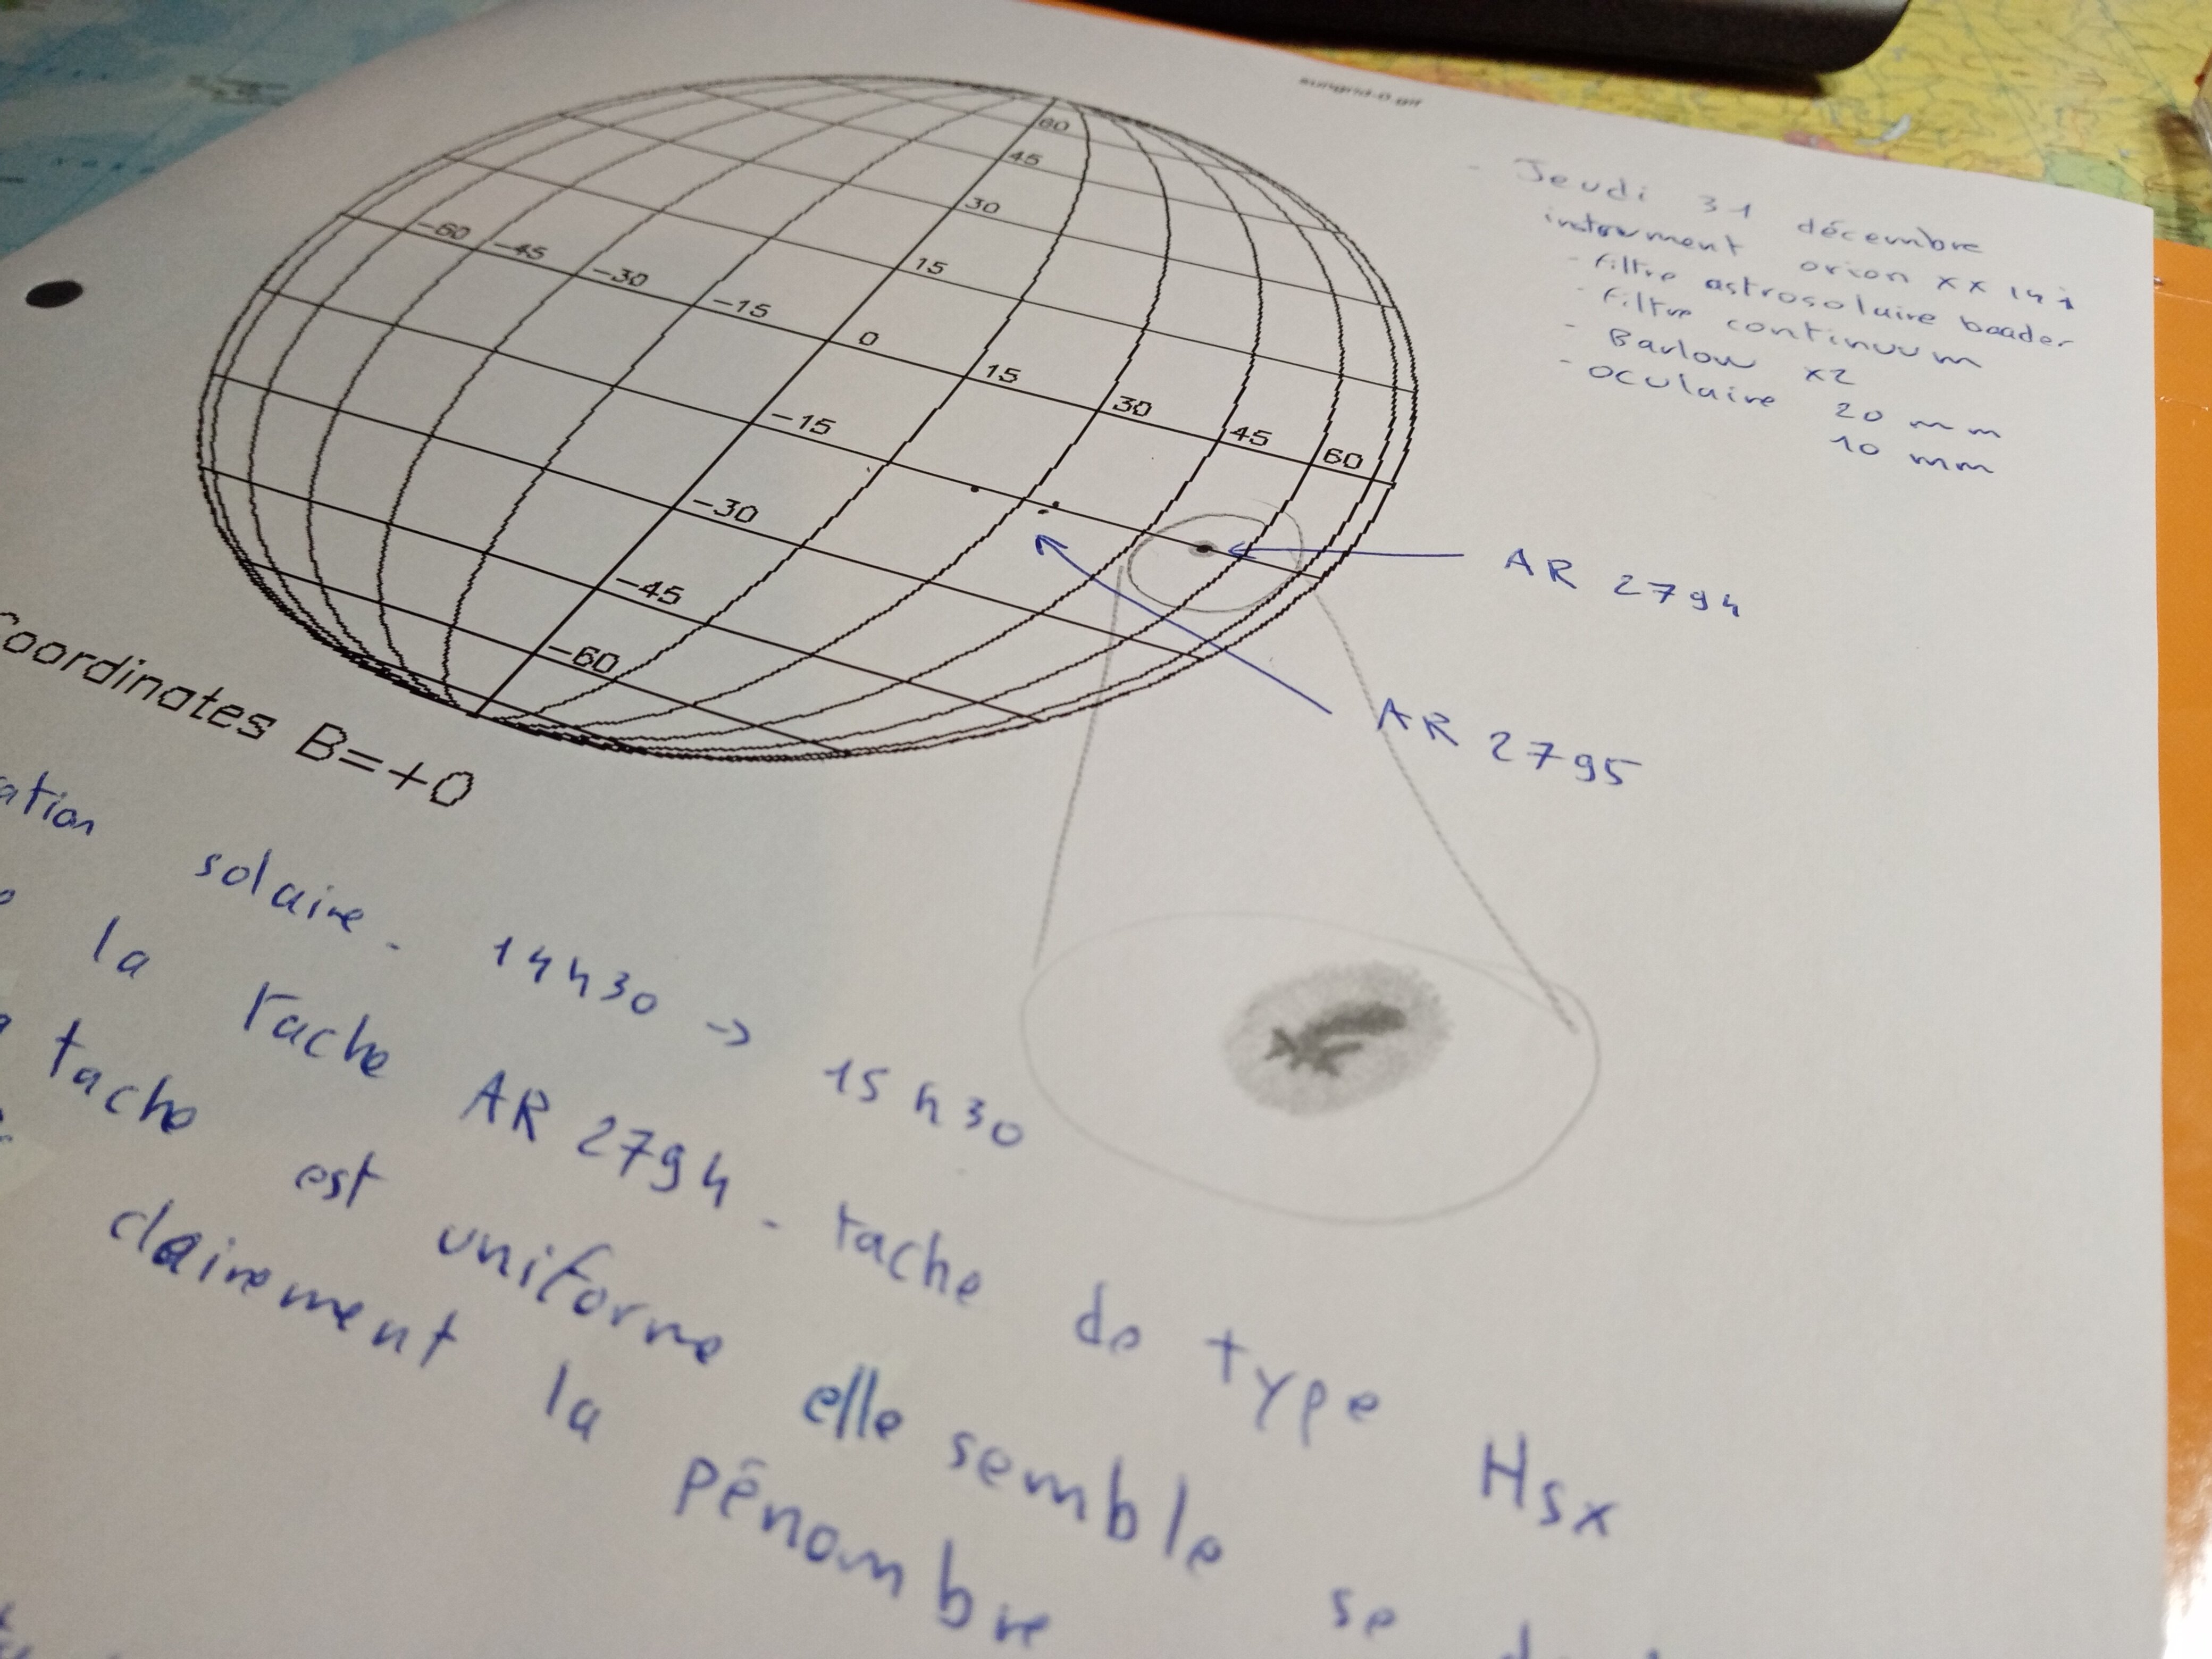 sungrid-0.gif
- Jeudi 31 décembre
instrument orion xx 14 i
- filtre astrosolaire baader
- filtre continuum
- Barlow x2
- oculaire 20 mm
10 mm
60
45
30
15
-60 -45 -30 -15 0 15 30 45 60
-15
-30
-45
-60
AR 2794
AR 2795
Coordinates B=+0
ation solaire - 14h30 → 15h30
la tache AR 2794 - tache de type Hsx
tache est uniforme elle semble se
clairement la pénombre